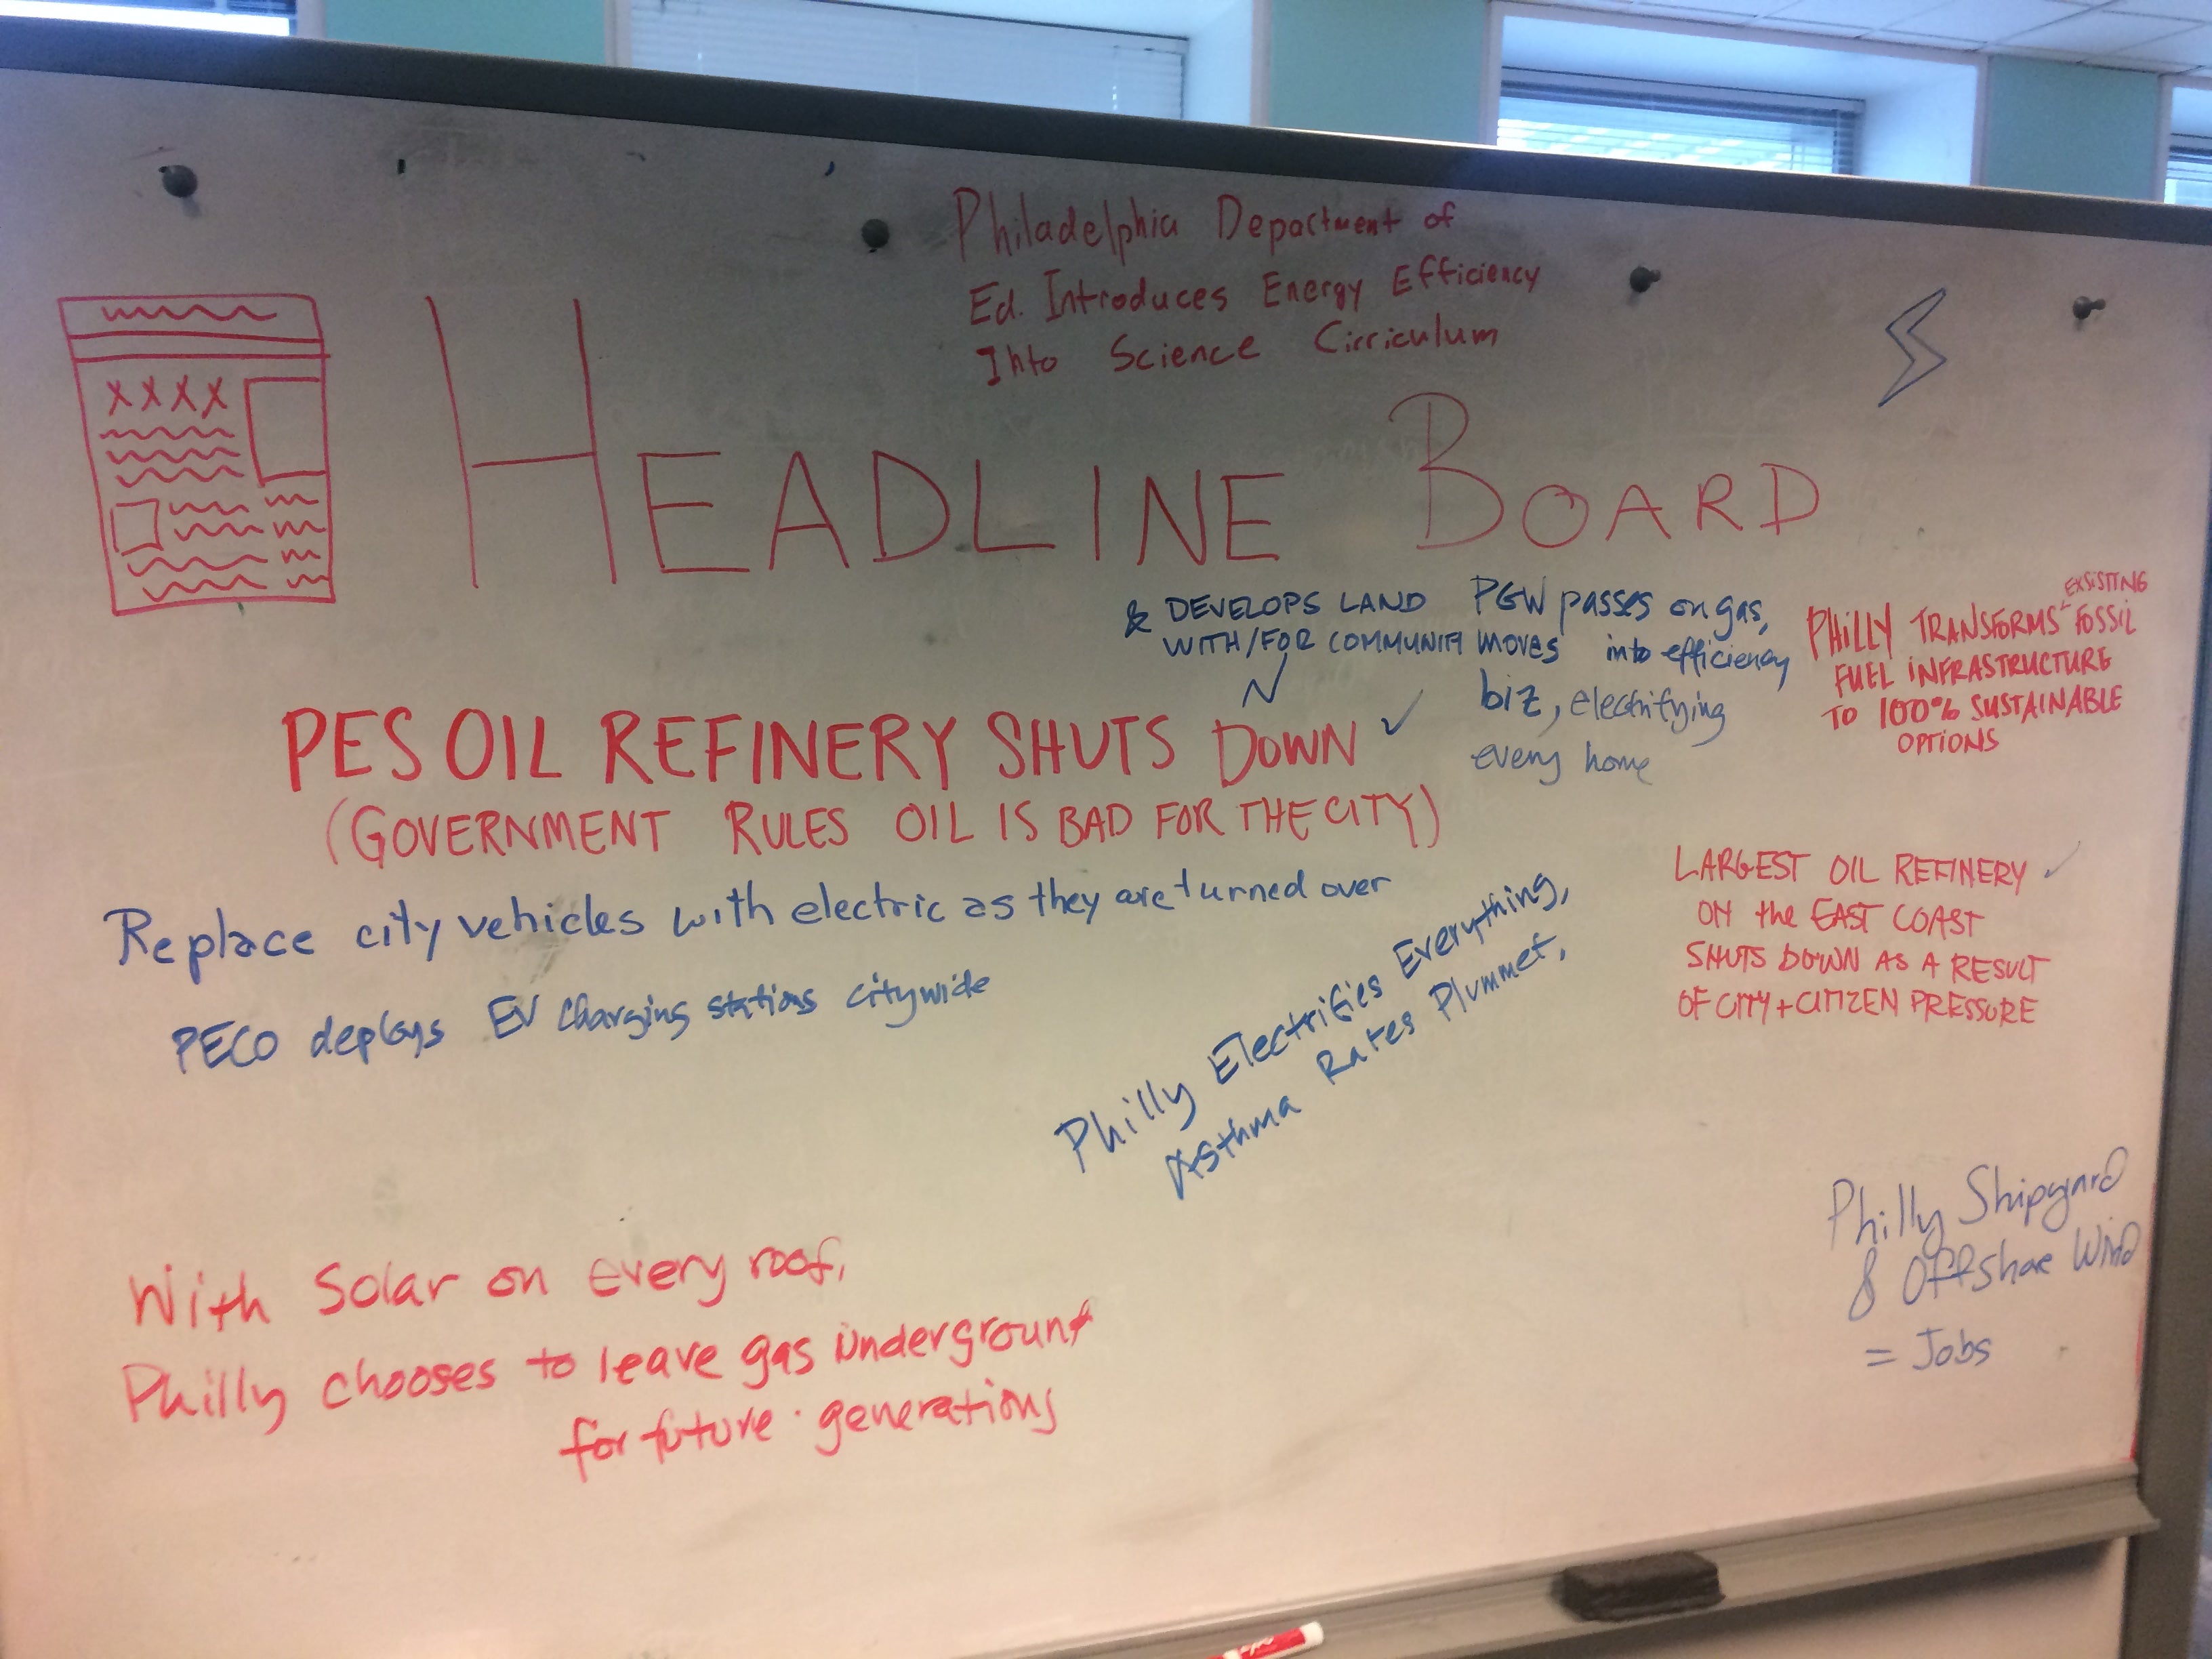 Philadelphia Department of
Ed. Introduces Energy Efficiency
Into Science Cirriculum
XXXX
HEADLINE BOARD
& DEVELOPS LAND
WITH/FOR COMMUNITY
PGW passes on gas,
moves into efficiency
biz, electrifying
every home
EXSISTING
PHILLY TRANSFORMS FOSSIL
FUEL INFRASTRUCTURE
TO 100% SUSTAINABLE
OPTIONS
PES OIL REFINERY SHUTS DOWN ✓
(GOVERNMENT RULES OIL IS BAD FOR THE CITY)
Replace city vehicles with electric as they are turned over
PECO deploys EV charging stations citywide
Philly Electrifies Everything,
Asthma Rates Plummet,
LARGEST OIL REFINERY ✓
ON the EAST COAST
SHUTS DOWN AS A RESULT
OF CITY + CITIZEN PRESSURE
With Solar on every roof,
Philly chooses to leave gas underground
for future generations
Philly Shipyard
& Offshore Wind
= Jobs